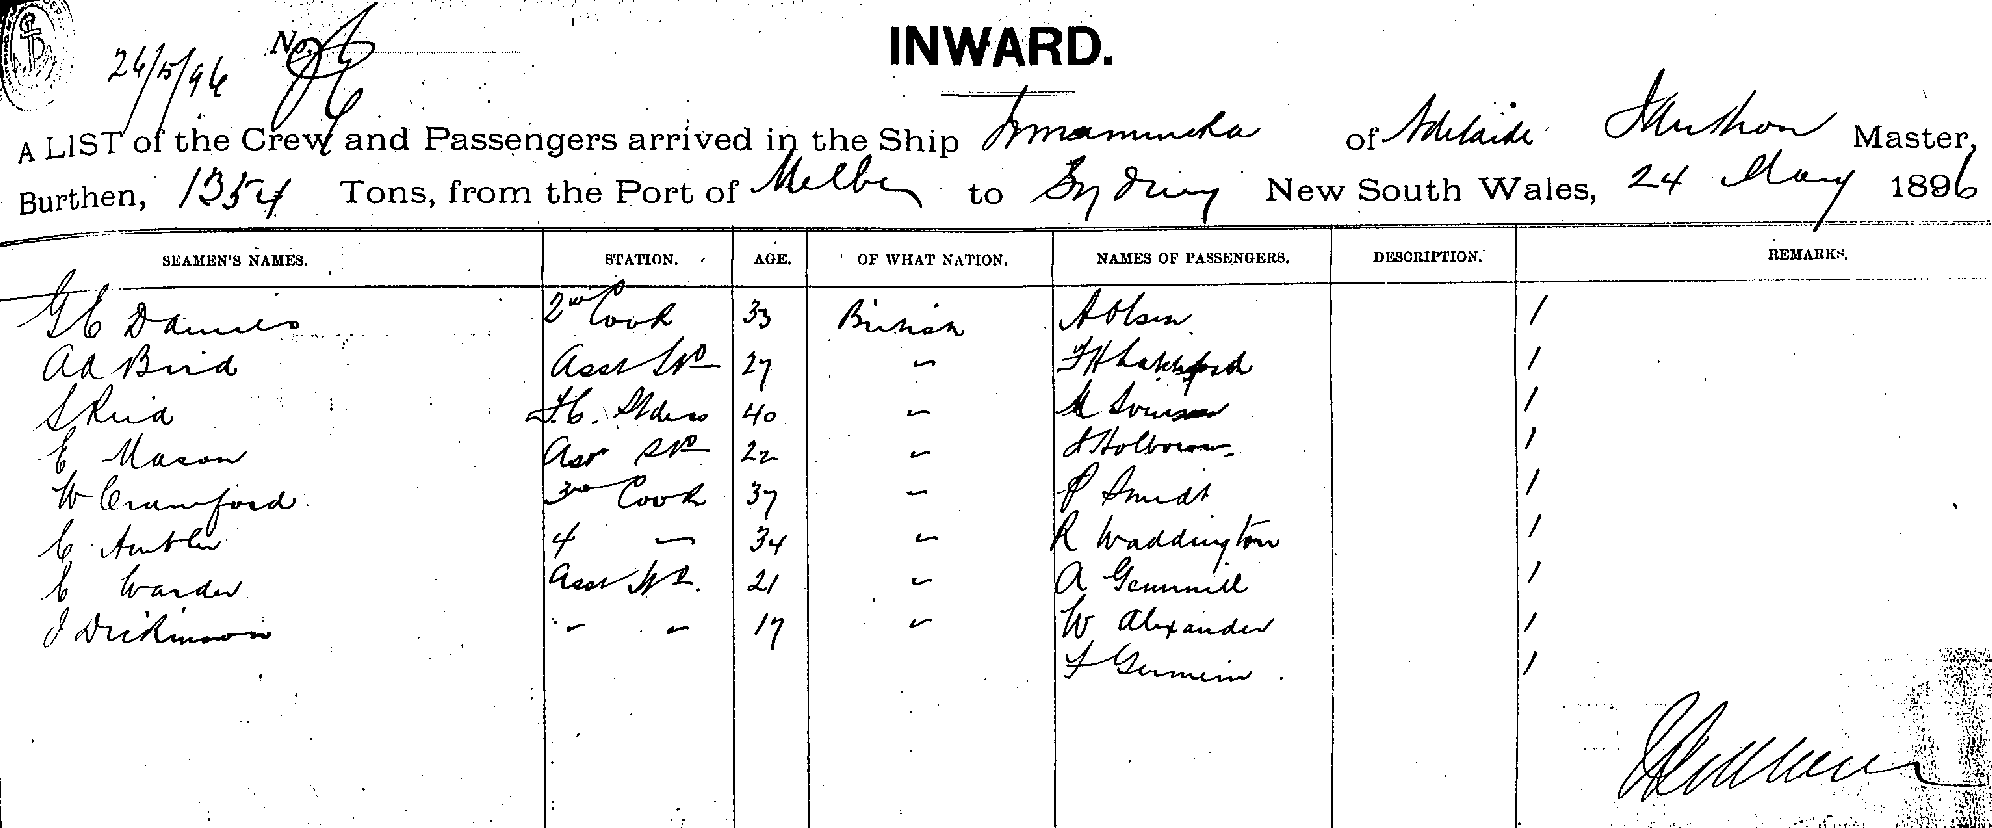 26/5/96 No.
INWARD.
A LIST of the Crew and Passengers arrived in the Ship Innamincka of Adelaide Master,
Burthen, 1354 Tons, from the Port of Melbn to Sydney New South Wales, 24 May 1896
SEAMEN'S NAMES. STATION. AGE. OF WHAT NATION. NAMES OF PASSENGERS. DESCRIPTION. REMARKS.
G C Daniels 2nd Cook 33 British A Olsen 1
A A Bird Asst Sd 27 " F H 1
S Reid F.C. Stdess 40 " 1
E Mason Asst Sd 22 " 1
W Crawford 3rd Cook 37 " P Smidt 1
C Ambler 4 " 34 " R Waddington 1
C Warder Asst Sd. 21 " A Gemmill 1
J Dickinson " " 17 " W Alexander 1
F Germein 1